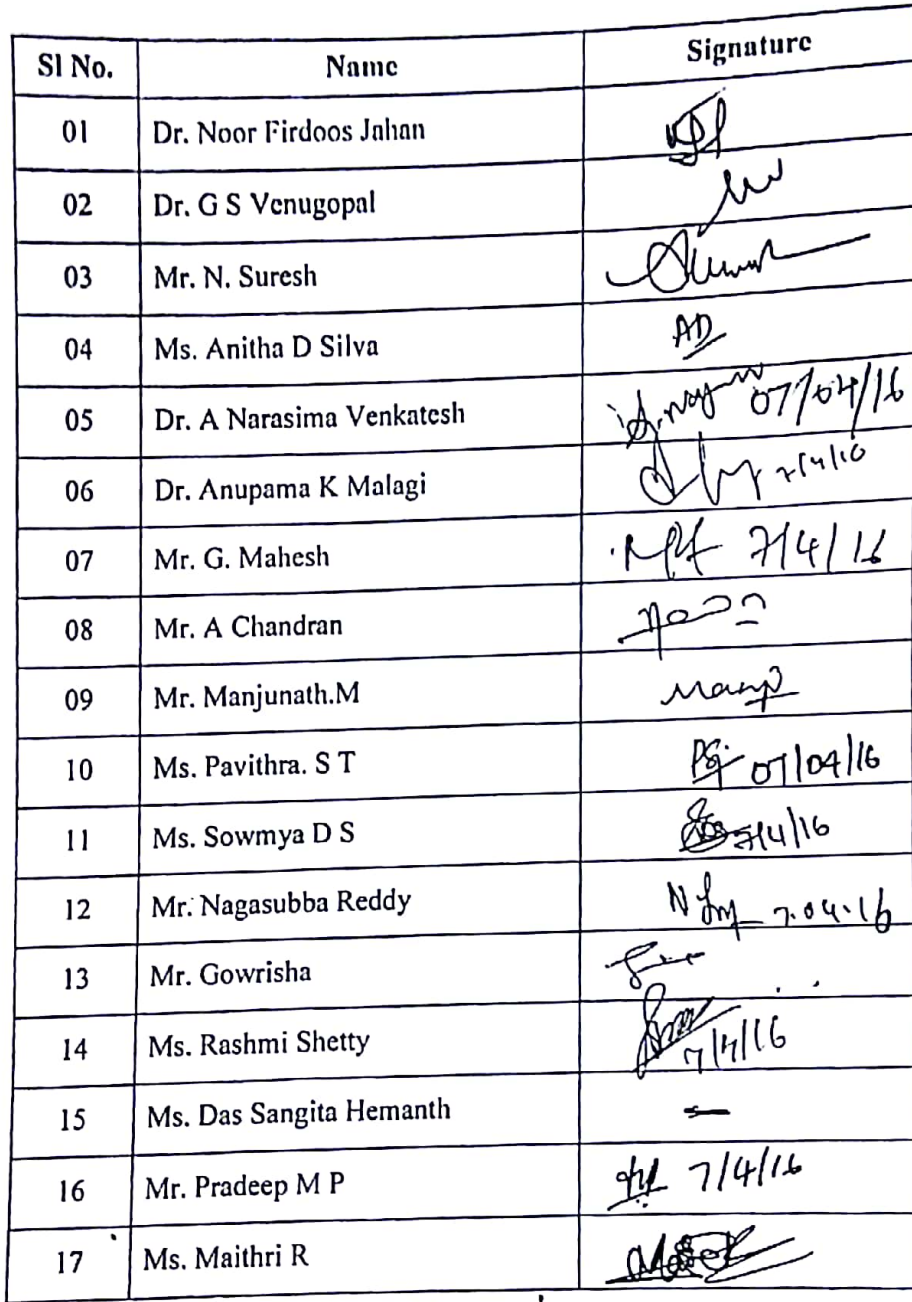 Sl No. Name Signature
01 Dr. Noor Firdoos Jahan
02 Dr. G S Venugopal
03 Mr. N. Suresh
04 Ms. Anitha D Silva AD
05 Dr. A Narasima Venkatesh 07/04/16
06 Dr. Anupama K Malagi 7/4/16
07 Mr. G. Mahesh 7/4/16
08 Mr. A Chandran
09 Mr. Manjunath.M
10 Ms. Pavithra. S T 07/04/16
11 Ms. Sowmya D S 7/4/16
12 Mr. Nagasubba Reddy 7.04.16
13 Mr. Gowrisha
14 Ms. Rashmi Shetty 7/4/16
15 Ms. Das Sangita Hemanth
16 Mr. Pradeep M P 7/4/16
17 Ms. Maithri R